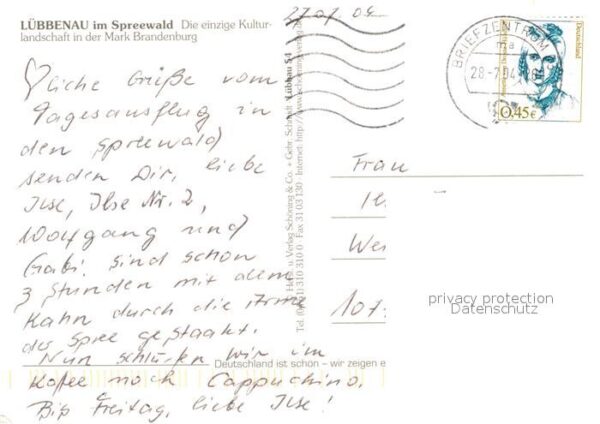 LÜBBENAU im Spreewald Die einzige Kultur-
landschaft in der Mark Brandenburg
27.07.04
♡liche Grüße vom
Tagesausflug in
den Spreewald
senden Dir, liebe
Ilse, Ilse Nr. 2,
Wolfgang und
Gabi. Sind schon
3 Stunden mit dem
Kahn durch die Arme
der Spree gestaakt.
Nun schlürfen wir im
Kaffee noch Cappuchino.
Biß Freitag, liebe Ilse!
Deutschland ist schön – wir zeigen e
Herst. u. Verlag Schöning & Co. + Gebr. Schmidt Lübbau 54
310 310 0 Fax 31 03 130 Internet: http://www.schoening-verlag
BRIEFZENTRUM
28.-7.04
ma
Deutschland
0,45€
Frau
Il
We
107
privacy protection
Datenschutz